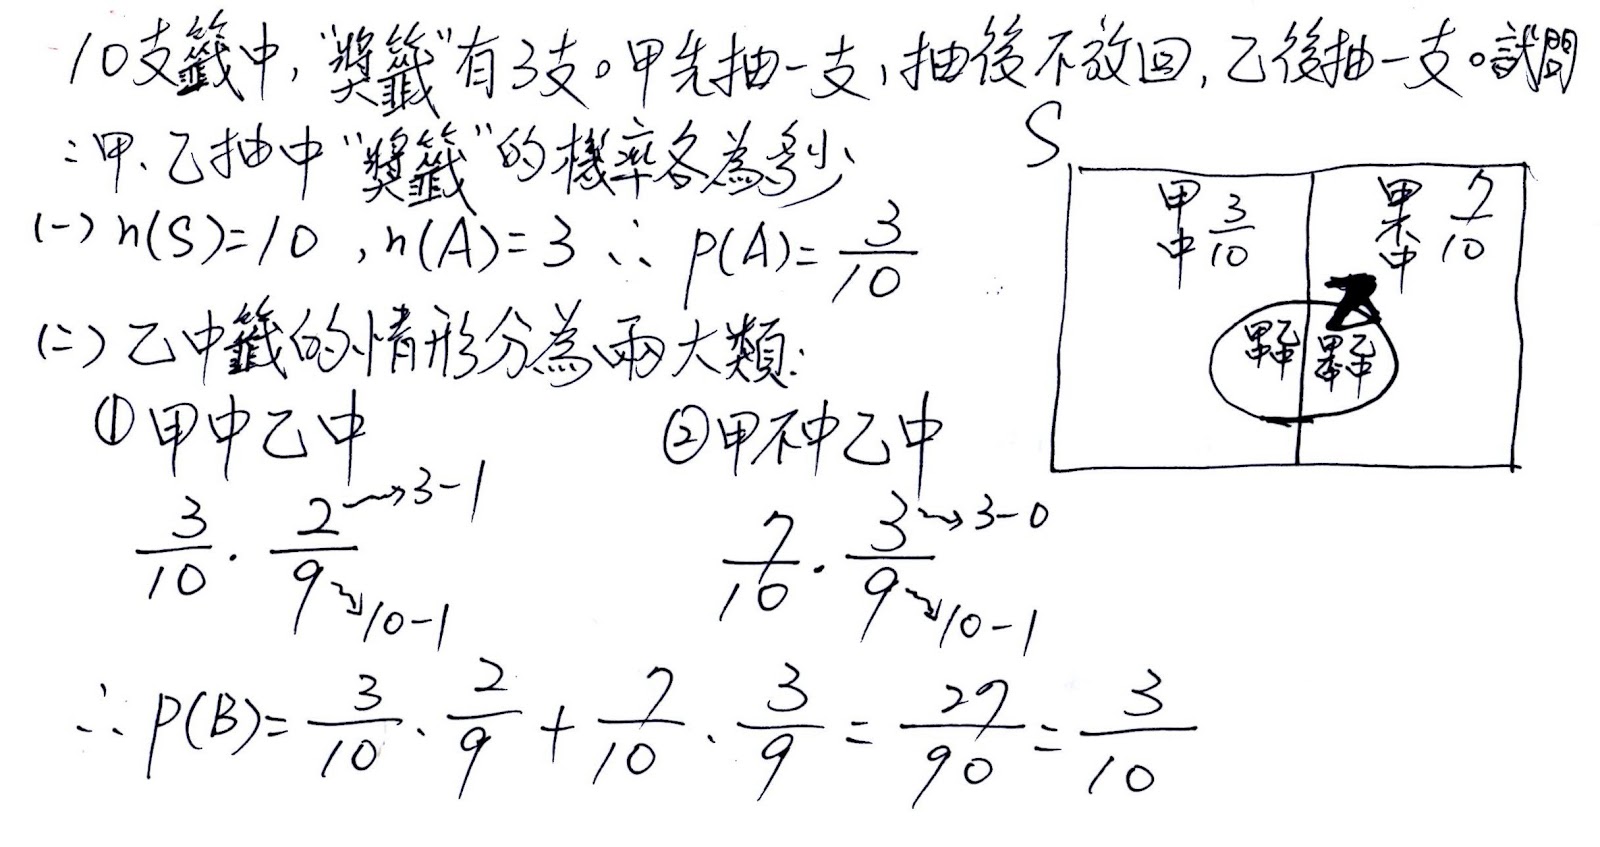 10支籤中,"獎籤"有3支。甲先抽一支,抽後不放回,乙後抽一支。試問
:甲、乙抽中"獎籤"的機率各為多少
(一) n(S)=10 , n(A)=3 ∴ p(A)= 3/10
(二) 乙中籤的情形分為兩大類:
① 甲中乙中
3/10 · 2/9
→3-1
→10-1
② 甲不中乙中
7/10 · 3/9
→3-0
→10-1
∴ p(B)= 3/10 · 2/9 + 7/10 · 3/9 = 27/90 = 3/10
S
甲中 3/10
甲不中 7/10
乙
甲中乙中
甲不中乙中